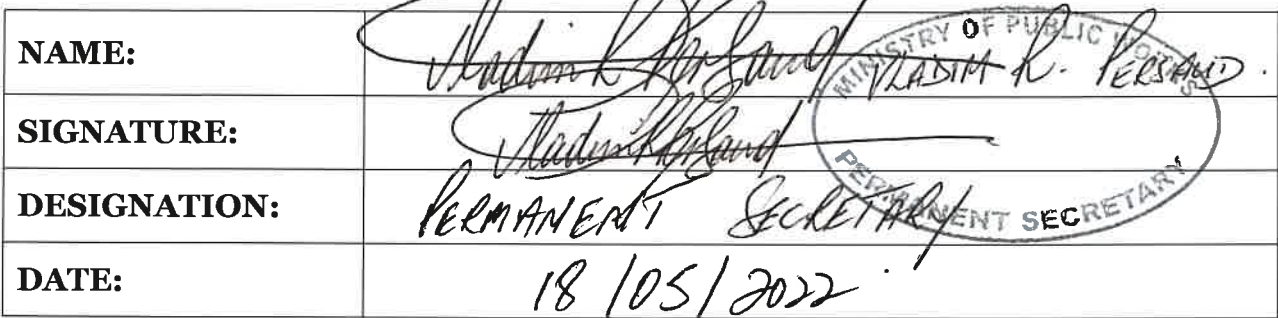 NAME: Vladim R Persaud VLADIM R. PERSAUD.
SIGNATURE: Vladim R Persaud
DESIGNATION: PERMANENT SECRETARY
DATE: 18/05/2022
MINISTRY OF PUBLIC WORKS
PERMANENT SECRETARY